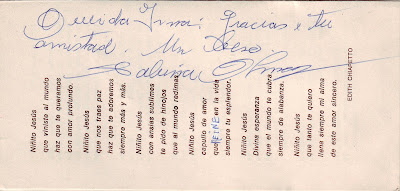 Querida Irma: Gracias x tu
amistad. Un Beso.
Sabina Olmos
Niñito Jesús
que viniste al mundo
haz que te queramos
con amor profundo.
Niñito Jesús
que nos traes paz
haz que te adoremos
siempre más y más.
Niñito Jesús
con ansias sublimes
te pido de hinojos
que al mundo redimas.
Niñito Jesús
capullo de amor
que REINE en la vida
siempre tu esplendor.
Niñito Jesús
Divina esperanza
que el mundo te cubra
siempre de alabanza.
Niñito Jesús
que tanto te quiero
llena siempre mi alma
de este amor sincero.
EDITH CHIAPETTO